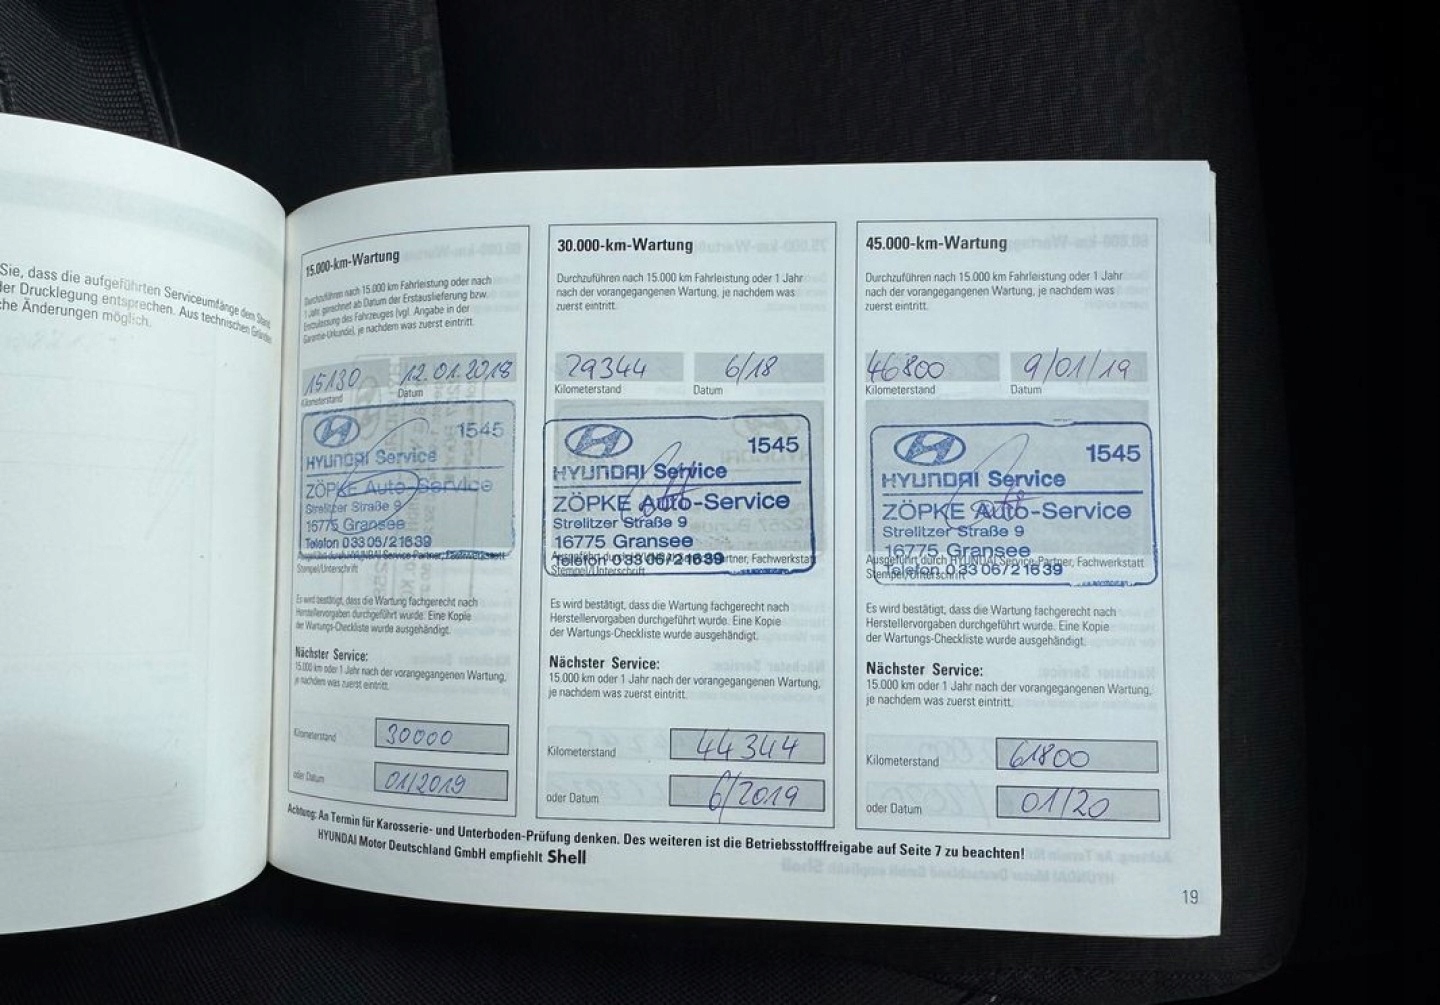 Sie, dass die aufgeführten Serviceumfänge dem Stand
der Drucklegung entsprechen. Aus technischen Gründen
che Änderungen möglich.
15.000-km-Wartung
Durchzuführen nach 15.000 km Fahrleistung oder nach
1 Jahr, gerechnet ab Datum der Erstauslieferung bzw.
Erstzulassung des Fahrzeuges (vgl. Angabe in der
Garantie-Urkunde), je nachdem was zuerst eintritt.
15130 12.01.2018
Kilometerstand Datum
1545
HYUNDAI Service
ZÖPKE Auto-Service
Strelitzer Straße 9
16775 Gransee
Telefon 0 33 06/2 16 39
Ausgeführt durch HYUNDAI Service-Partner, Fachwerkstatt
Stempel/Unterschrift
Es wird bestätigt, dass die Wartung fachgerecht nach
Herstellervorgaben durchgeführt wurde. Eine Kopie
der Wartungs-Checkliste wurde ausgehändigt.
Nächster Service:
15.000 km oder 1 Jahr nach der vorangegangenen Wartung,
je nachdem was zuerst eintritt.
Kilometerstand 30000
oder Datum 01/2019
30.000-km-Wartung
Durchzuführen nach 15.000 km Fahrleistung oder 1 Jahr
nach der vorangegangenen Wartung, je nachdem was
zuerst eintritt.
29344 6/18
Kilometerstand Datum
1545
HYUNDAI Service
ZÖPKE Auto-Service
Strelitzer Straße 9
16775 Gransee
Telefon 0 33 06/2 16 39
Ausgeführt durch HYUNDAI Service-Partner, Fachwerkstatt
Stempel/Unterschrift
Es wird bestätigt, dass die Wartung fachgerecht nach
Herstellervorgaben durchgeführt wurde. Eine Kopie
der Wartungs-Checkliste wurde ausgehändigt.
Nächster Service:
15.000 km oder 1 Jahr nach der vorangegangenen Wartung,
je nachdem was zuerst eintritt.
Kilometerstand 44344
oder Datum 6/2019
45.000-km-Wartung
Durchzuführen nach 15.000 km Fahrleistung oder 1 Jahr
nach der vorangegangenen Wartung, je nachdem was
zuerst eintritt.
46800 9/01/19
Kilometerstand Datum
1545
HYUNDAI Service
ZÖPKE Auto-Service
Strelitzer Straße 9
16775 Gransee
Telefon 0 33 06/2 16 39
Ausgeführt durch HYUNDAI Service-Partner, Fachwerkstatt
Stempel/Unterschrift
Es wird bestätigt, dass die Wartung fachgerecht nach
Herstellervorgaben durchgeführt wurde. Eine Kopie
der Wartungs-Checkliste wurde ausgehändigt.
Nächster Service:
15.000 km oder 1 Jahr nach der vorangegangenen Wartung,
je nachdem was zuerst eintritt.
Kilometerstand 61800
oder Datum 01/20
Achtung: An Termin für Karosserie- und Unterboden-Prüfung denken. Des weiteren ist die Betriebsstofffreigabe auf Seite 7 zu beachten!
HYUNDAI Motor Deutschland GmbH empfiehlt Shell
19